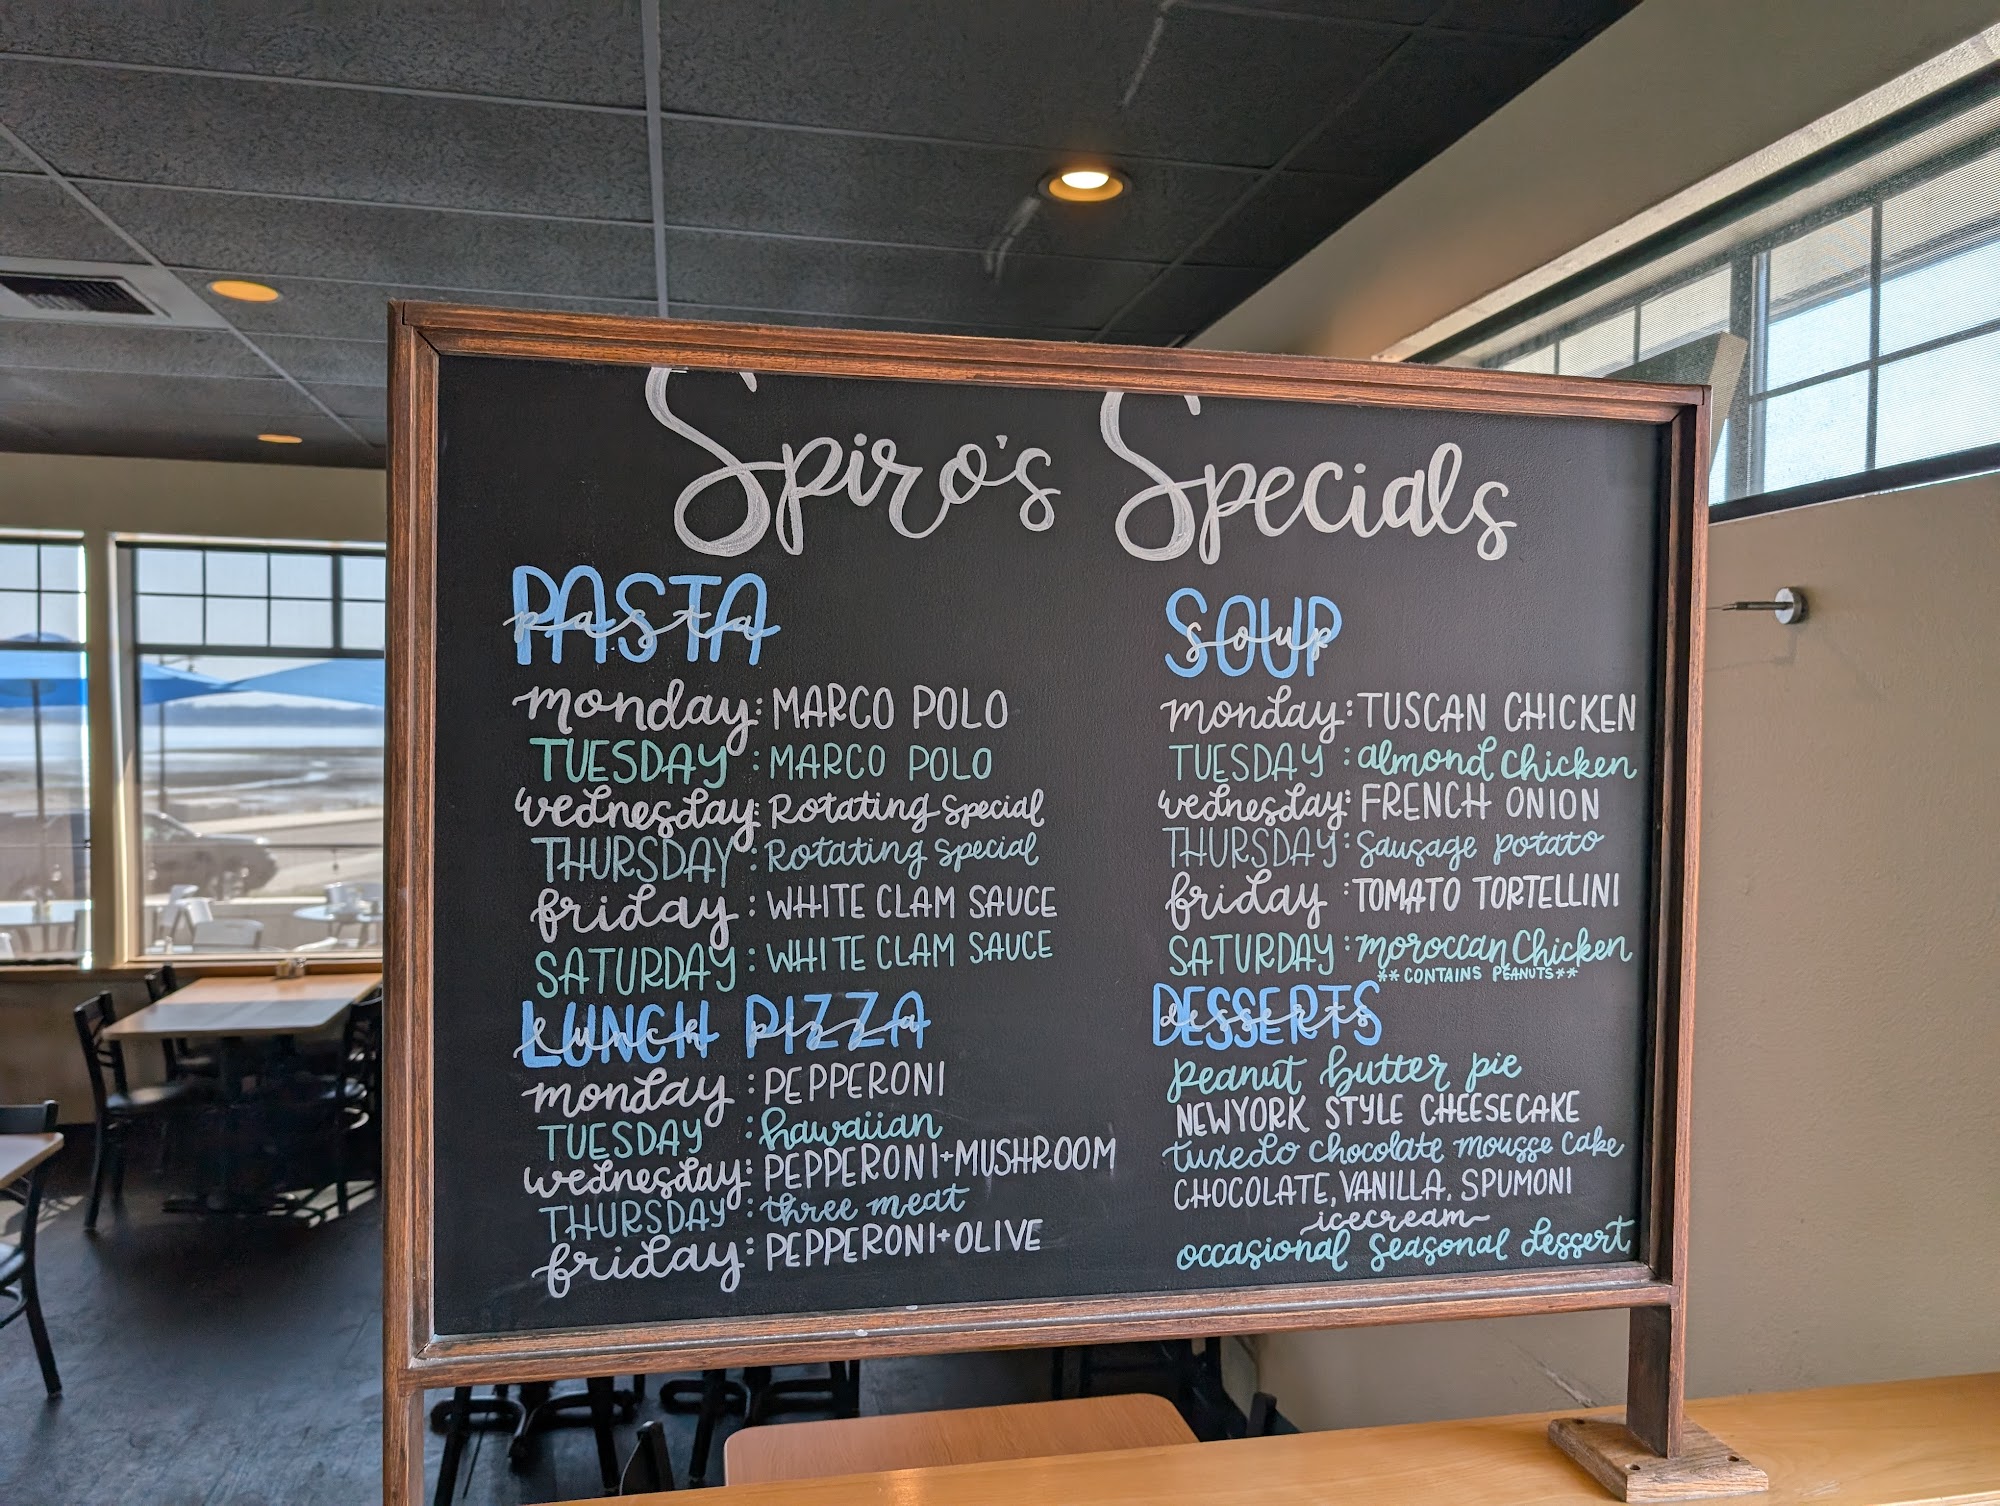 Spiro's Specials
PASTA
pasta
monday: MARCO POLO
TUESDAY: MARCO POLO
wednesday: Rotating Special
THURSDAY: Rotating Special
friday: WHITE CLAM SAUCE
SATURDAY: WHITE CLAM SAUCE
LUNCH PIZZA
lunch pizza
monday: PEPPERONI
TUESDAY: hawaiian
wednesday: PEPPERONI+MUSHROOM
THURSDAY: three meat
friday: PEPPERONI+OLIVE
SOUP
soup
monday: TUSCAN CHICKEN
TUESDAY: almond chicken
wednesday: FRENCH ONION
THURSDAY: Sausage potato
friday: TOMATO TORTELLINI
SATURDAY: moroccan Chicken
**CONTAINS PEANUTS**
DESSERTS
desserts
peanut butter pie
NEWYORK STYLE CHEESECAKE
tuxedo chocolate mousse cake
CHOCOLATE, VANILLA, SPUMONI
icecream
occasional seasonal dessert